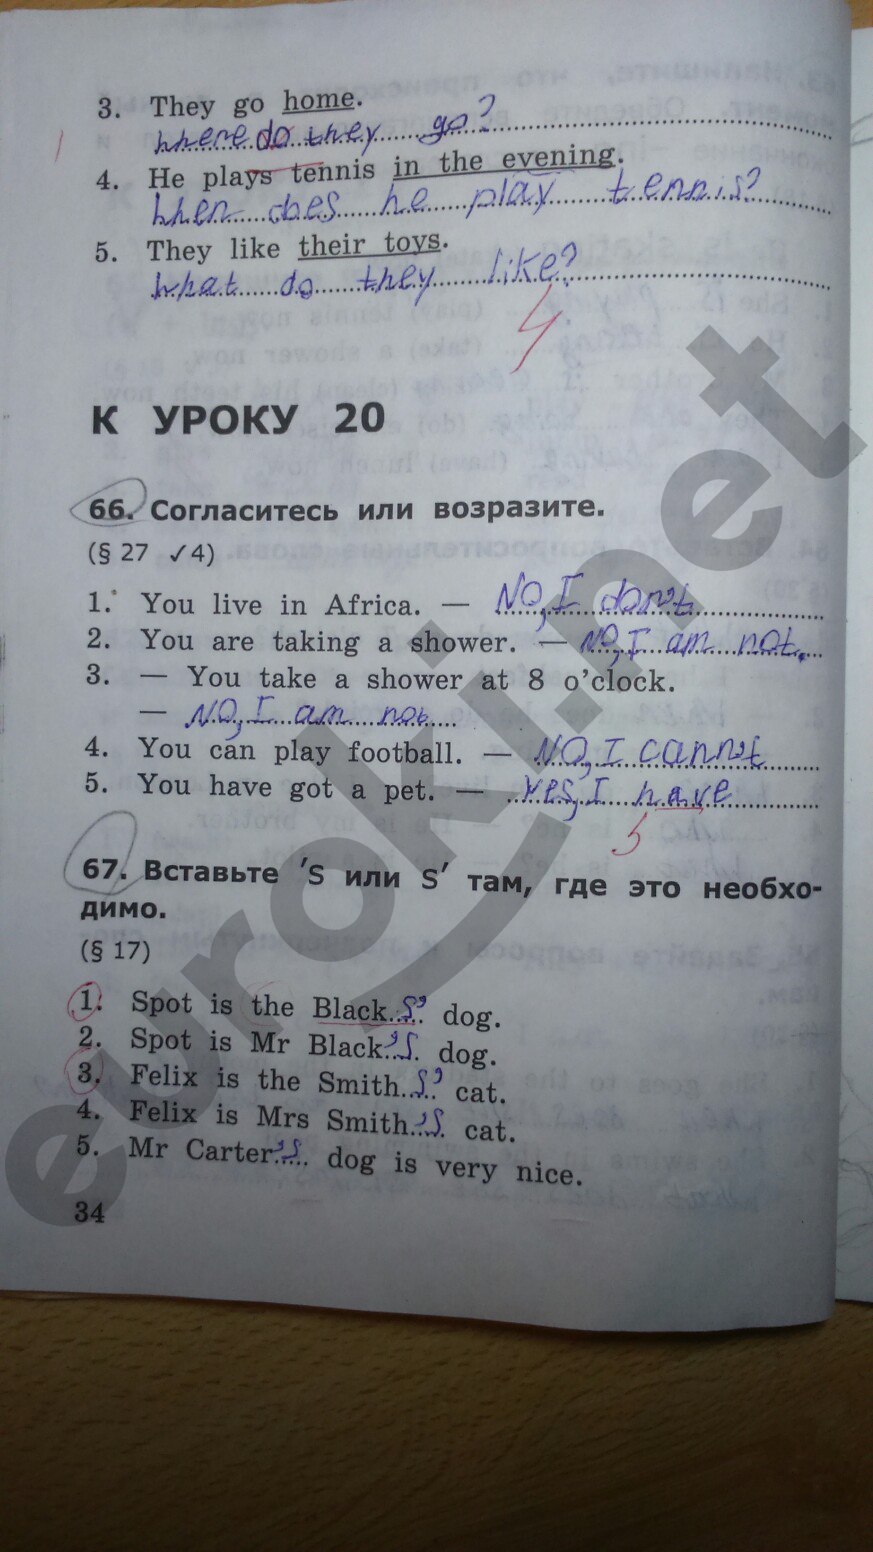 3. They go home.
where do they go?
4. He plays tennis in the evening.
when does he play tennis?
5. They like their toys.
what do they like?
4
К УРОКУ 20
66. Согласитесь или возразите.
(§ 27 ✓4)
1. You live in Africa. — NO, I don't
2. You are taking a shower. — NO, I am not.
3. — You take a shower at 8 o'clock.
— NO, I am not
4. You can play football. — NO, I cannot
5. You have got a pet. — Yes, I have
5
67. Вставьте 's или s' там, где это необхо-
димо.
(§ 17)
1. Spot is the Black s' dog.
2. Spot is Mr Black 's dog.
3. Felix is the Smith s' cat.
4. Felix is Mrs Smith 's cat.
5. Mr Carter 's dog is very nice.
34
euroki.net